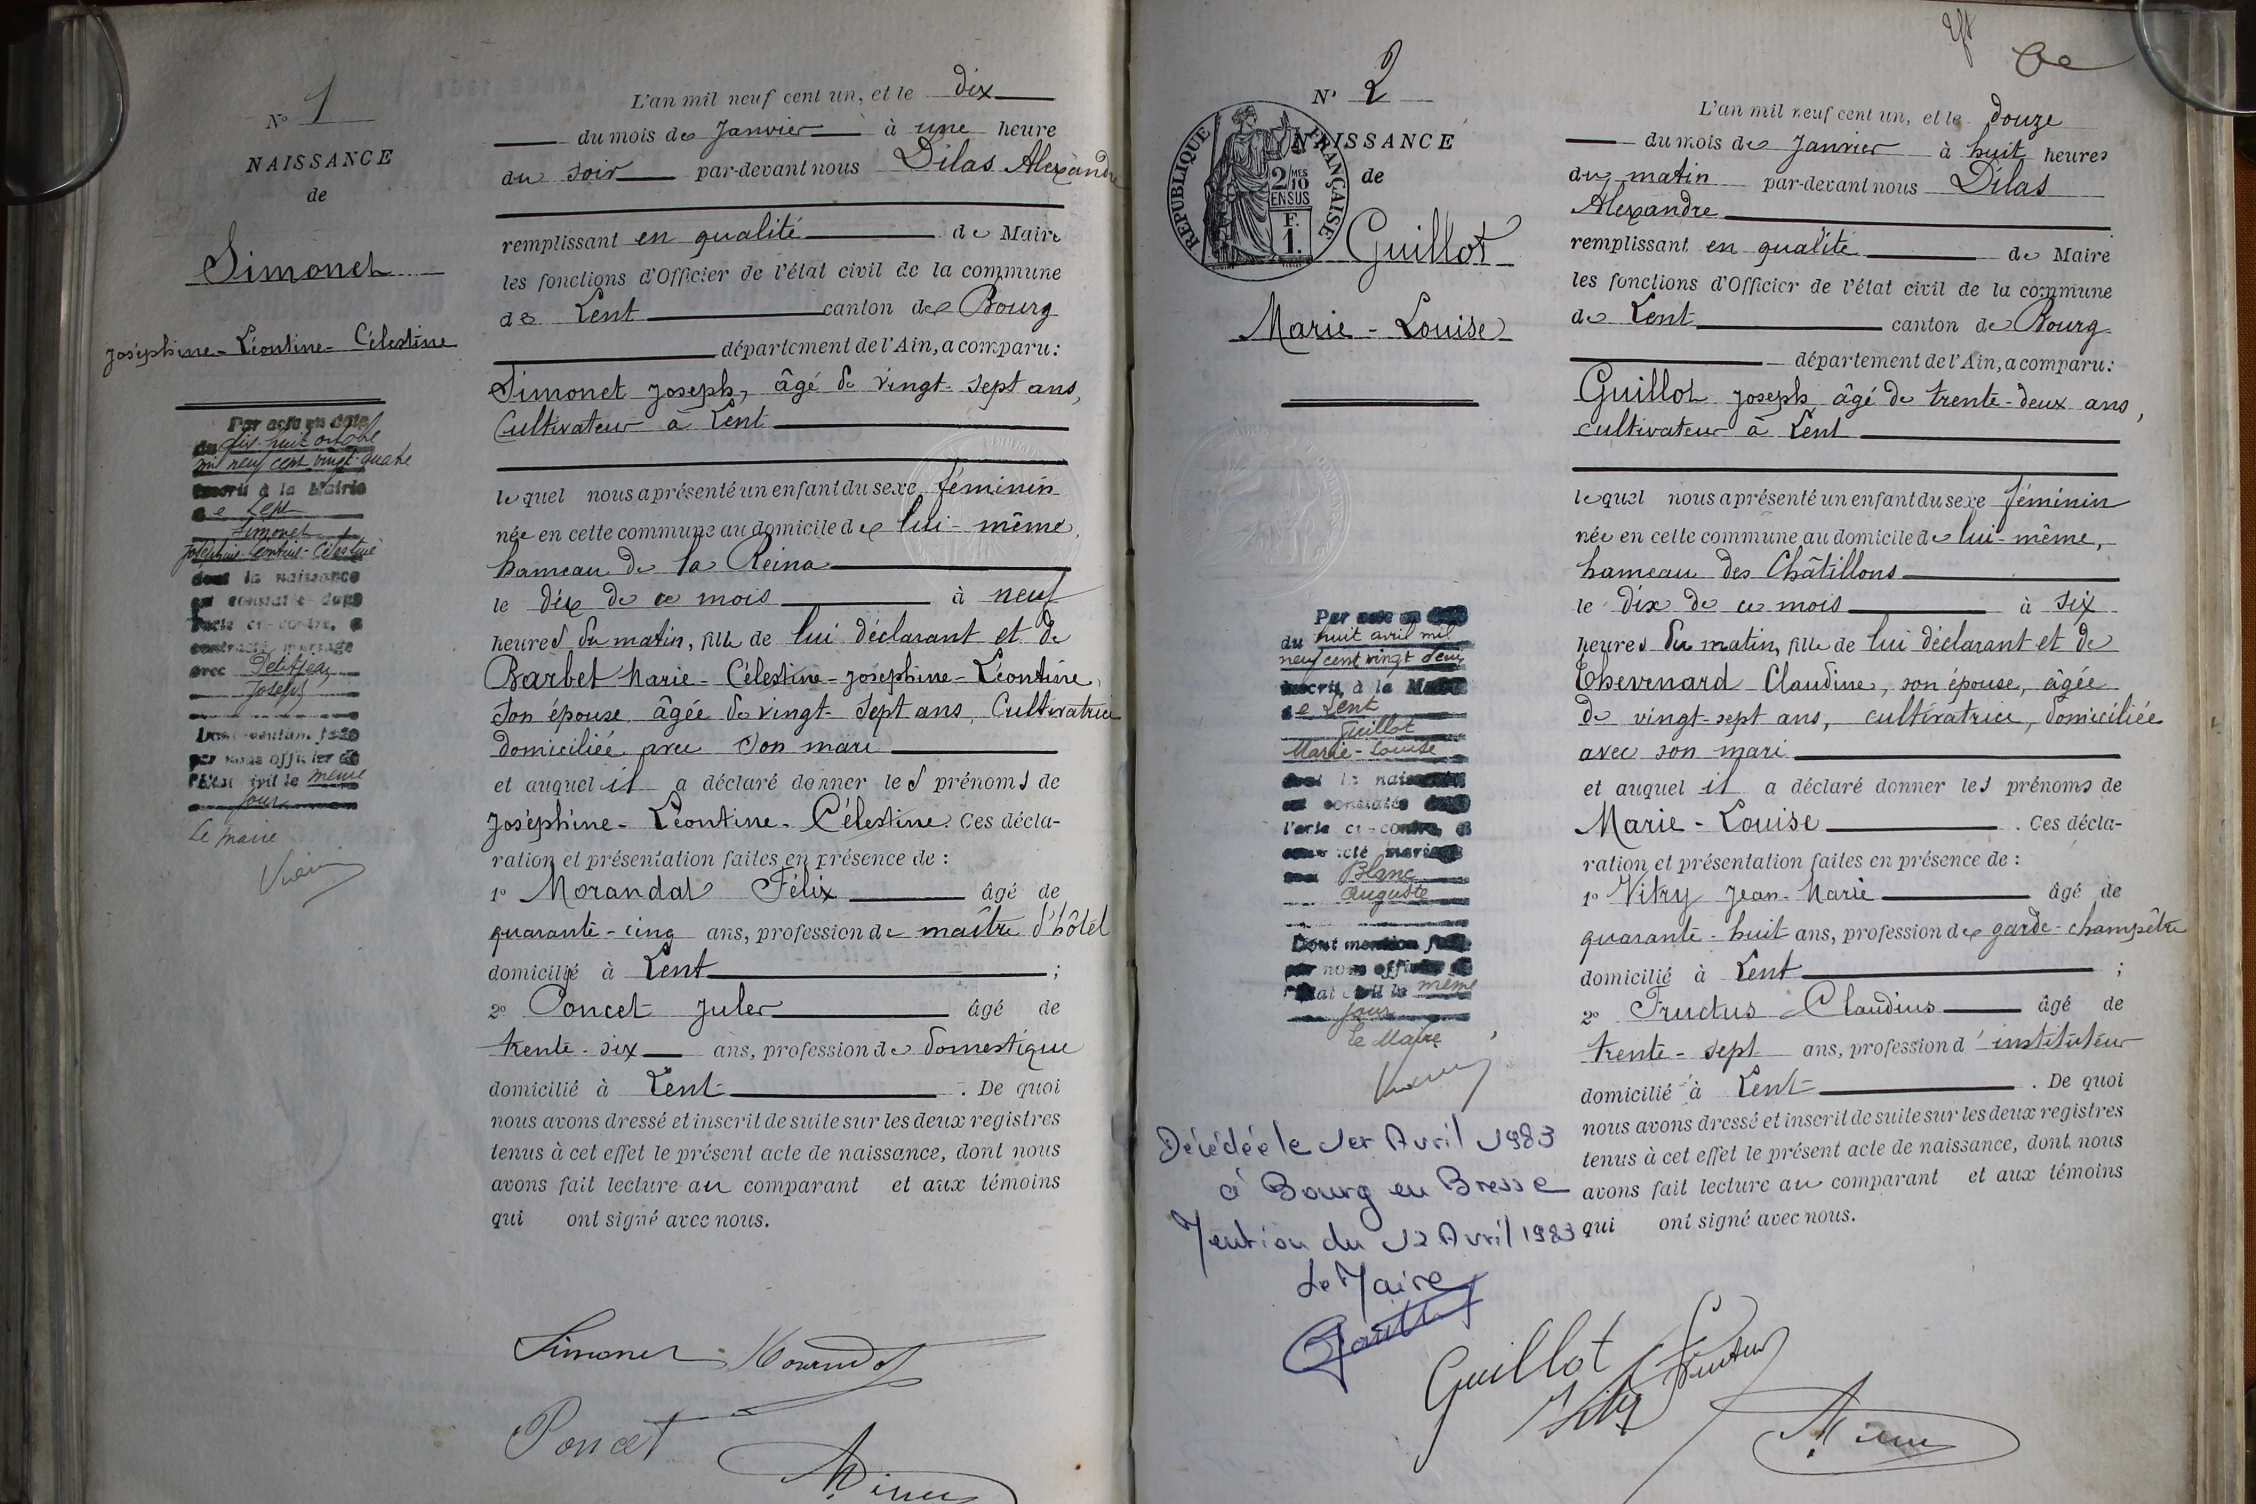 N° 1
NAISSANCE
de
Simonet
Joséphine - Léontine - Célestine
Par acte en date
du dix-huit octobre
mil neuf cent vingt-quatre
inscrit à la Mairie
de Lent
Simonet
Joséphine-Léontine-Célestine
dont la naissance
est constatée dans
l'acte ci-contre, a
contracté mariage
avec
Joseph
Dont mention faite
par nous officier de
l'Etat civil le même
jour
Le maire
L'an mil neuf cent un, et le dix
du mois de Janvier à une heure
du soir par-devant nous Dilas Alexandre
remplissant en qualité de Maire
les fonctions d'Officier de l'état civil de la commune
de Lent canton de Bourg
département de l'Ain, a comparu :
Simonet Joseph, âgé de vingt-sept ans,
Cultivateur à Lent
lequel nous a présenté un enfant du sexe féminin
née en cette commune au domicile de lui-même,
hameau de la Reina
le dix de ce mois à neuf
heures du matin, fille de lui déclarant et de
Barbet Marie - Célestine - Joséphine - Léontine,
son épouse âgée de vingt-sept ans, Cultivatrice
domiciliée avec son mari
et auquel il a déclaré donner les prénoms de
Joséphine - Léontine - Célestine. Ces décla-
ration et présentation faites en présence de :
1° Morandat Félix âgé de
quarante-cinq ans, profession de maître d'hôtel
domicilié à Lent ;
2° Poncet Jules âgé de
trente-six ans, profession de domestique
domicilié à Lent . De quoi
nous avons dressé et inscrit de suite sur les deux registres
tenus à cet effet le présent acte de naissance, dont nous
avons fait lecture au comparant et aux témoins
qui ont signé avec nous.
Simonet Morandat
Poncet
N° 2
NAISSANCE
de
REPUBLIQUE FRANÇAISE
2/10 MES
EN SUS
F.
1.
Guillot
Marie - Louise
Par acte en date
du huit avril mil
neuf cent vingt deux
inscrit à la Mairie
de Lent
Guillot
Marie-Louise
dont la naissance
est constatée dans
l'acte ci-contre, a
contracté mariage
avec Blanc
Auguste
Dont mention faite
par nous officier de
l'Etat civil le même
jour
le Maire
Décédée le 1er Avril 1983
à Bourg en Bresse
Mention du 12 Avril 1983
Le Maire
L'an mil neuf cent un, et le douze
du mois de Janvier à huit heures
du matin par-devant nous Dilas
Alexandre
remplissant en qualité de Maire
les fonctions d'Officier de l'état civil de la commune
de Lent canton de Bourg
département de l'Ain, a comparu :
Guillot Joseph âgé de trente-deux ans,
cultivateur à Lent
lequel nous a présenté un enfant du sexe féminin
née en cette commune au domicile de lui-même,
hameau des Châtillons
le dix de ce mois à six
heures du matin, fille de lui déclarant et de
Thevenard Claudine, son épouse, âgée
de vingt-sept ans, cultivatrice, domiciliée
avec son mari
et auquel il a déclaré donner les prénoms de
Marie - Louise . Ces décla-
ration et présentation faites en présence de :
1° Vitry Jean-Marie âgé de
quarante-huit ans, profession de garde-champêtre
domicilié à Lent ;
2° Fructus Claudius âgé de
trente-sept ans, profession d'instituteur
domicilié à Lent . De quoi
nous avons dressé et inscrit de suite sur les deux registres
tenus à cet effet le présent acte de naissance, dont nous
avons fait lecture au comparant et aux témoins
qui ont signé avec nous.
Guillot Fructus
Vitry